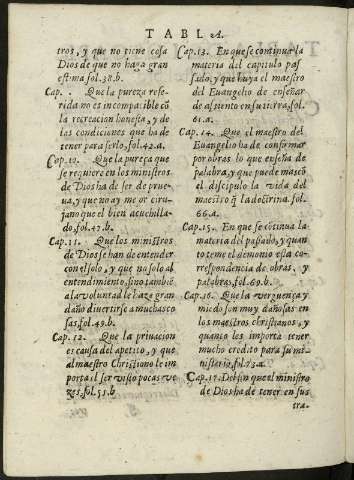 TABLA.
tros, y que no tiene cosa
Dios de que no haga gran
estima fol.38.b.
Cap. . Que la pureza refe-
rida no es incompatible cõ
la recreacion honesta, y de
las condiciones que ha de
tener para serlo, fol.42.a.
Cap. 10. Que la pureça que
se requiere en los ministros
de Dios ha de ser de prue-
ua, y que no ay mejor ciru-
jano que el bien acuchilla-
do, fol.47.b.
Cap. 11. Que los ministros
de Dios se han de entender
con el solo, y que no solo al
entendimiento, sino tambiẽ
a la voluntad le haze gran
daño diuertirse a muchas co
sas, fol.49.b.
Cap. 12. Que la priuacion
es causa del apetito, y que
al maestro Christiano le im
porta el ser visto pocas ve
zes, fol.55.b
Cap.13. En que se continua la
materia del capitulo pas
sado, y que huya el maestro
del Euangelio de enseñar
de assiento en su tierra, fol.
61.a.
Cap. 14. Que el maestro del
Euangelio ha de conformar
por obras lo que enseña de
palabra, y que puede mas cõ
el discipulo la vida del
maestro q̃ la doctrina. fol.
66.a.
Cap.15. En que se cõtinua la
materia del passado, y quan
to teme el demonio esta co
rrespondencia de obras, y
palabras, fol.69.b.
Cap.16. Que la verguença y
miedo son muy dañosas en
los maestros christianos, y
quanto les importa tener
mucho credito para su mi-
nisterio, fol.73.a.
Cap.17. Del fin que al ministro
de Dios ha de tener en sus
tra-